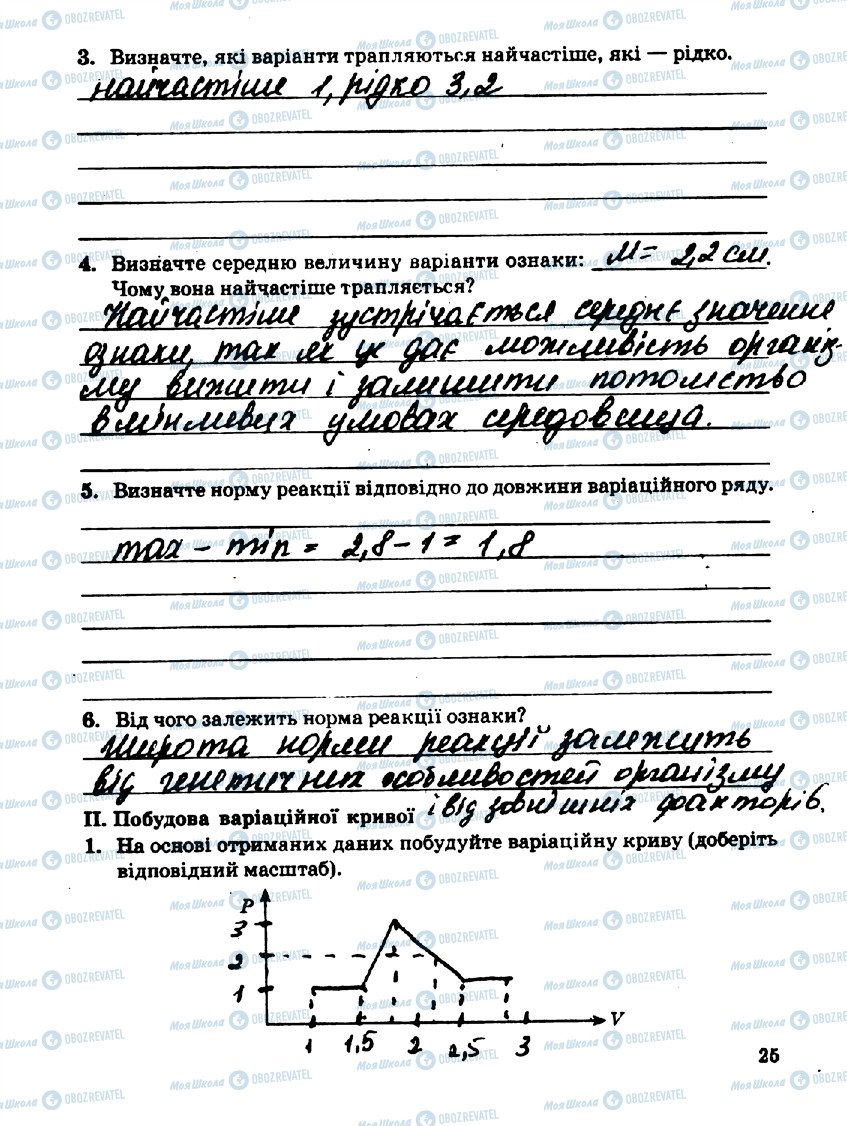 3. Визначте, які варіанти трапляються найчастіше, які — рідко.
найчастіше 1, рідко 3,2
4. Визначте середню величину варіанти ознаки: M = 2,2 см.
Чому вона найчастіше трапляється?
Найчастіше зустрічається середнє значення
ознаки, так як це дає можливість організ-
му вижити і залишити потомство
в мінливих умовах середовища.
5. Визначте норму реакції відповідно до довжини варіаційного ряду.
max - min = 2,8 - 1 = 1,8
6. Від чого залежить норма реакції ознаки?
Широта норми реакції залежить
від генетичних особливостей організму
і від зовнішніх факторів.
II. Побудова варіаційної кривої
1. На основі отриманих даних побудуйте варіаційну криву (доберіть
відповідний масштаб).
P
3
2
1
V
1 1,5 2 2,5 3
25